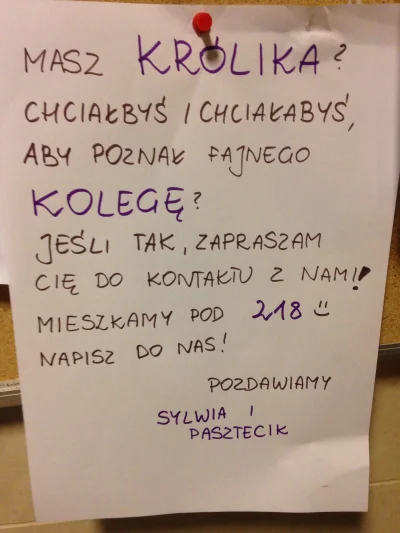 MASZ KRÓLIKA?
CHCIAŁBYŚ I CHCIAŁABYŚ,
ABY POZNAŁ FAJNEGO
KOLEGĘ?
JEŚLI TAK, ZAPRASZAM
CIĘ DO KONTAKTU Z NAMI!
MIESZKAMY POD 218 :)
NAPISZ DO NAS!
POZDAWIAMY
SYLWIA I
PASZTECIK